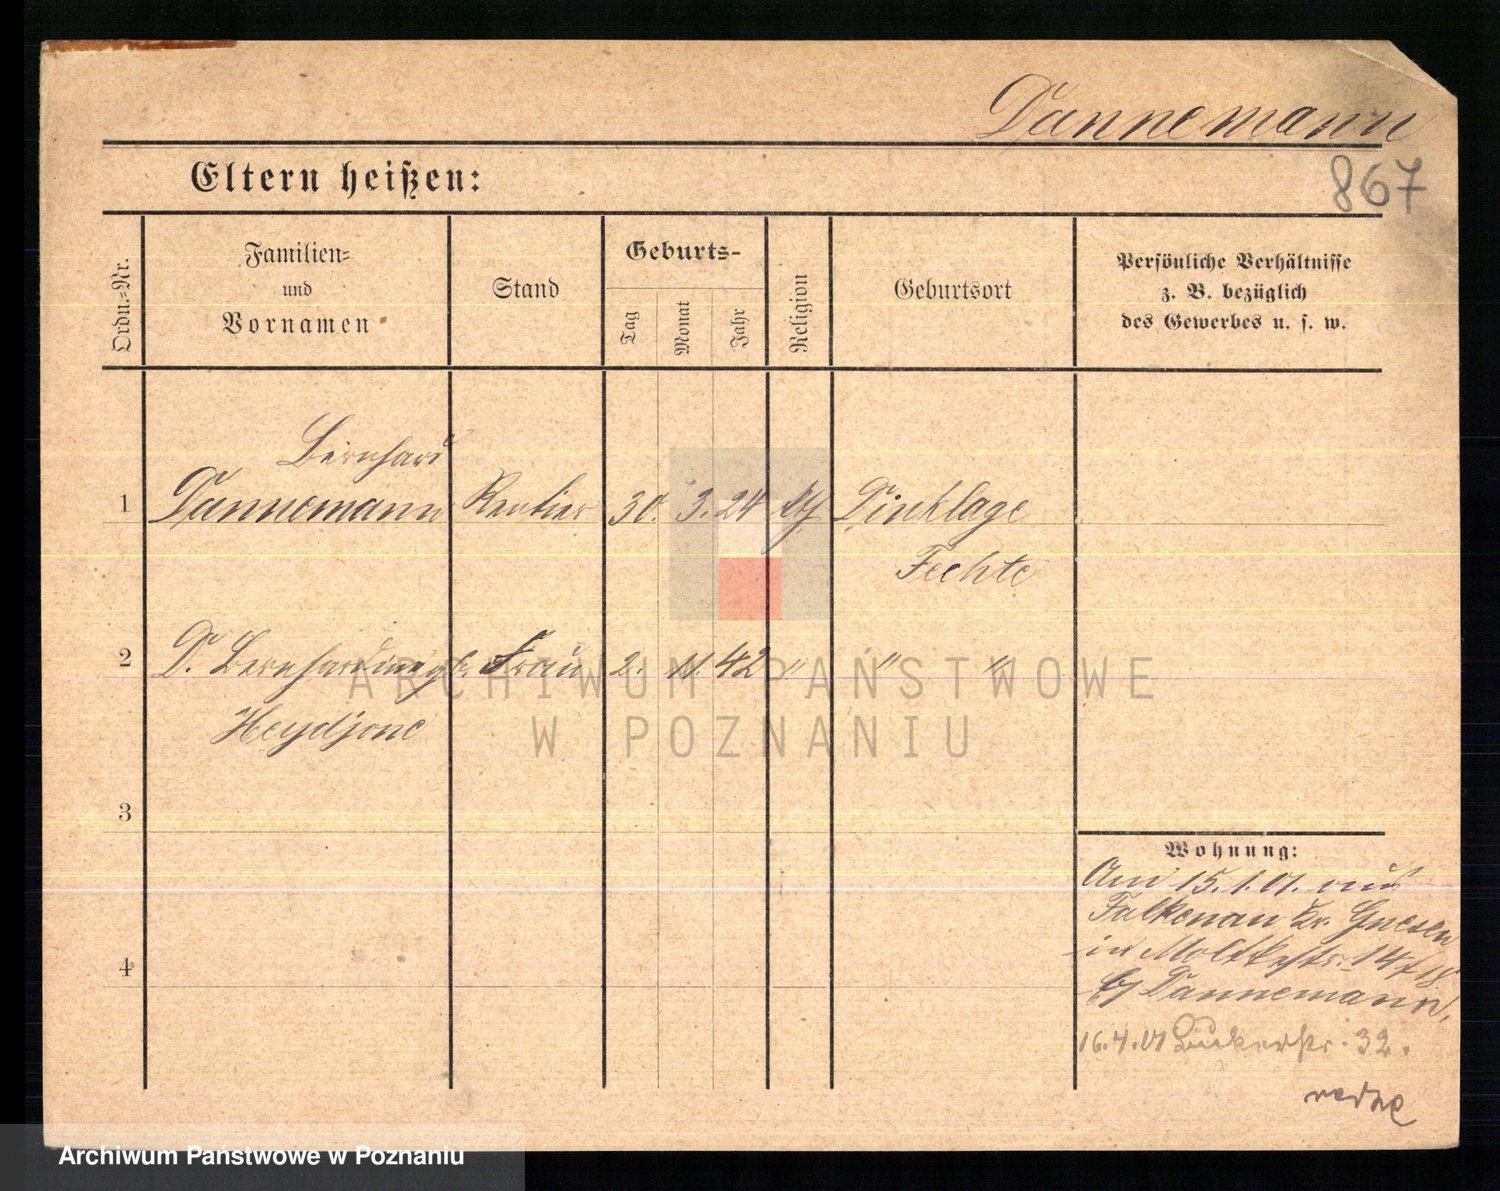 Dannemann
867
Eltern heißen:
Ordn.-Nr.
Familien-
und
Vornamen
Stand
Geburts-
Tag
Monat
Jahr
Religion
Geburtsort
Persönliche Verhältnisse
z. B. bezüglich
des Gewerbes u. s. w.
Bernhard
1 Dannemann Rentier 30. 3. 24 kth Dinklage
Fechte
2 D. Bernhardine gb. Frau 2. 11. 42 " " "
Heydjone
3
4
Wohnung:
Am 15.1.01. aus
Falkenau Kr. Gnesen
in Moltkestr. 14/18
b/ Dannemann.
16.4.01 32.
ARCHIWUM PAŃSTWOWE
W POZNANIU
Archiwum Państwowe w Poznaniu